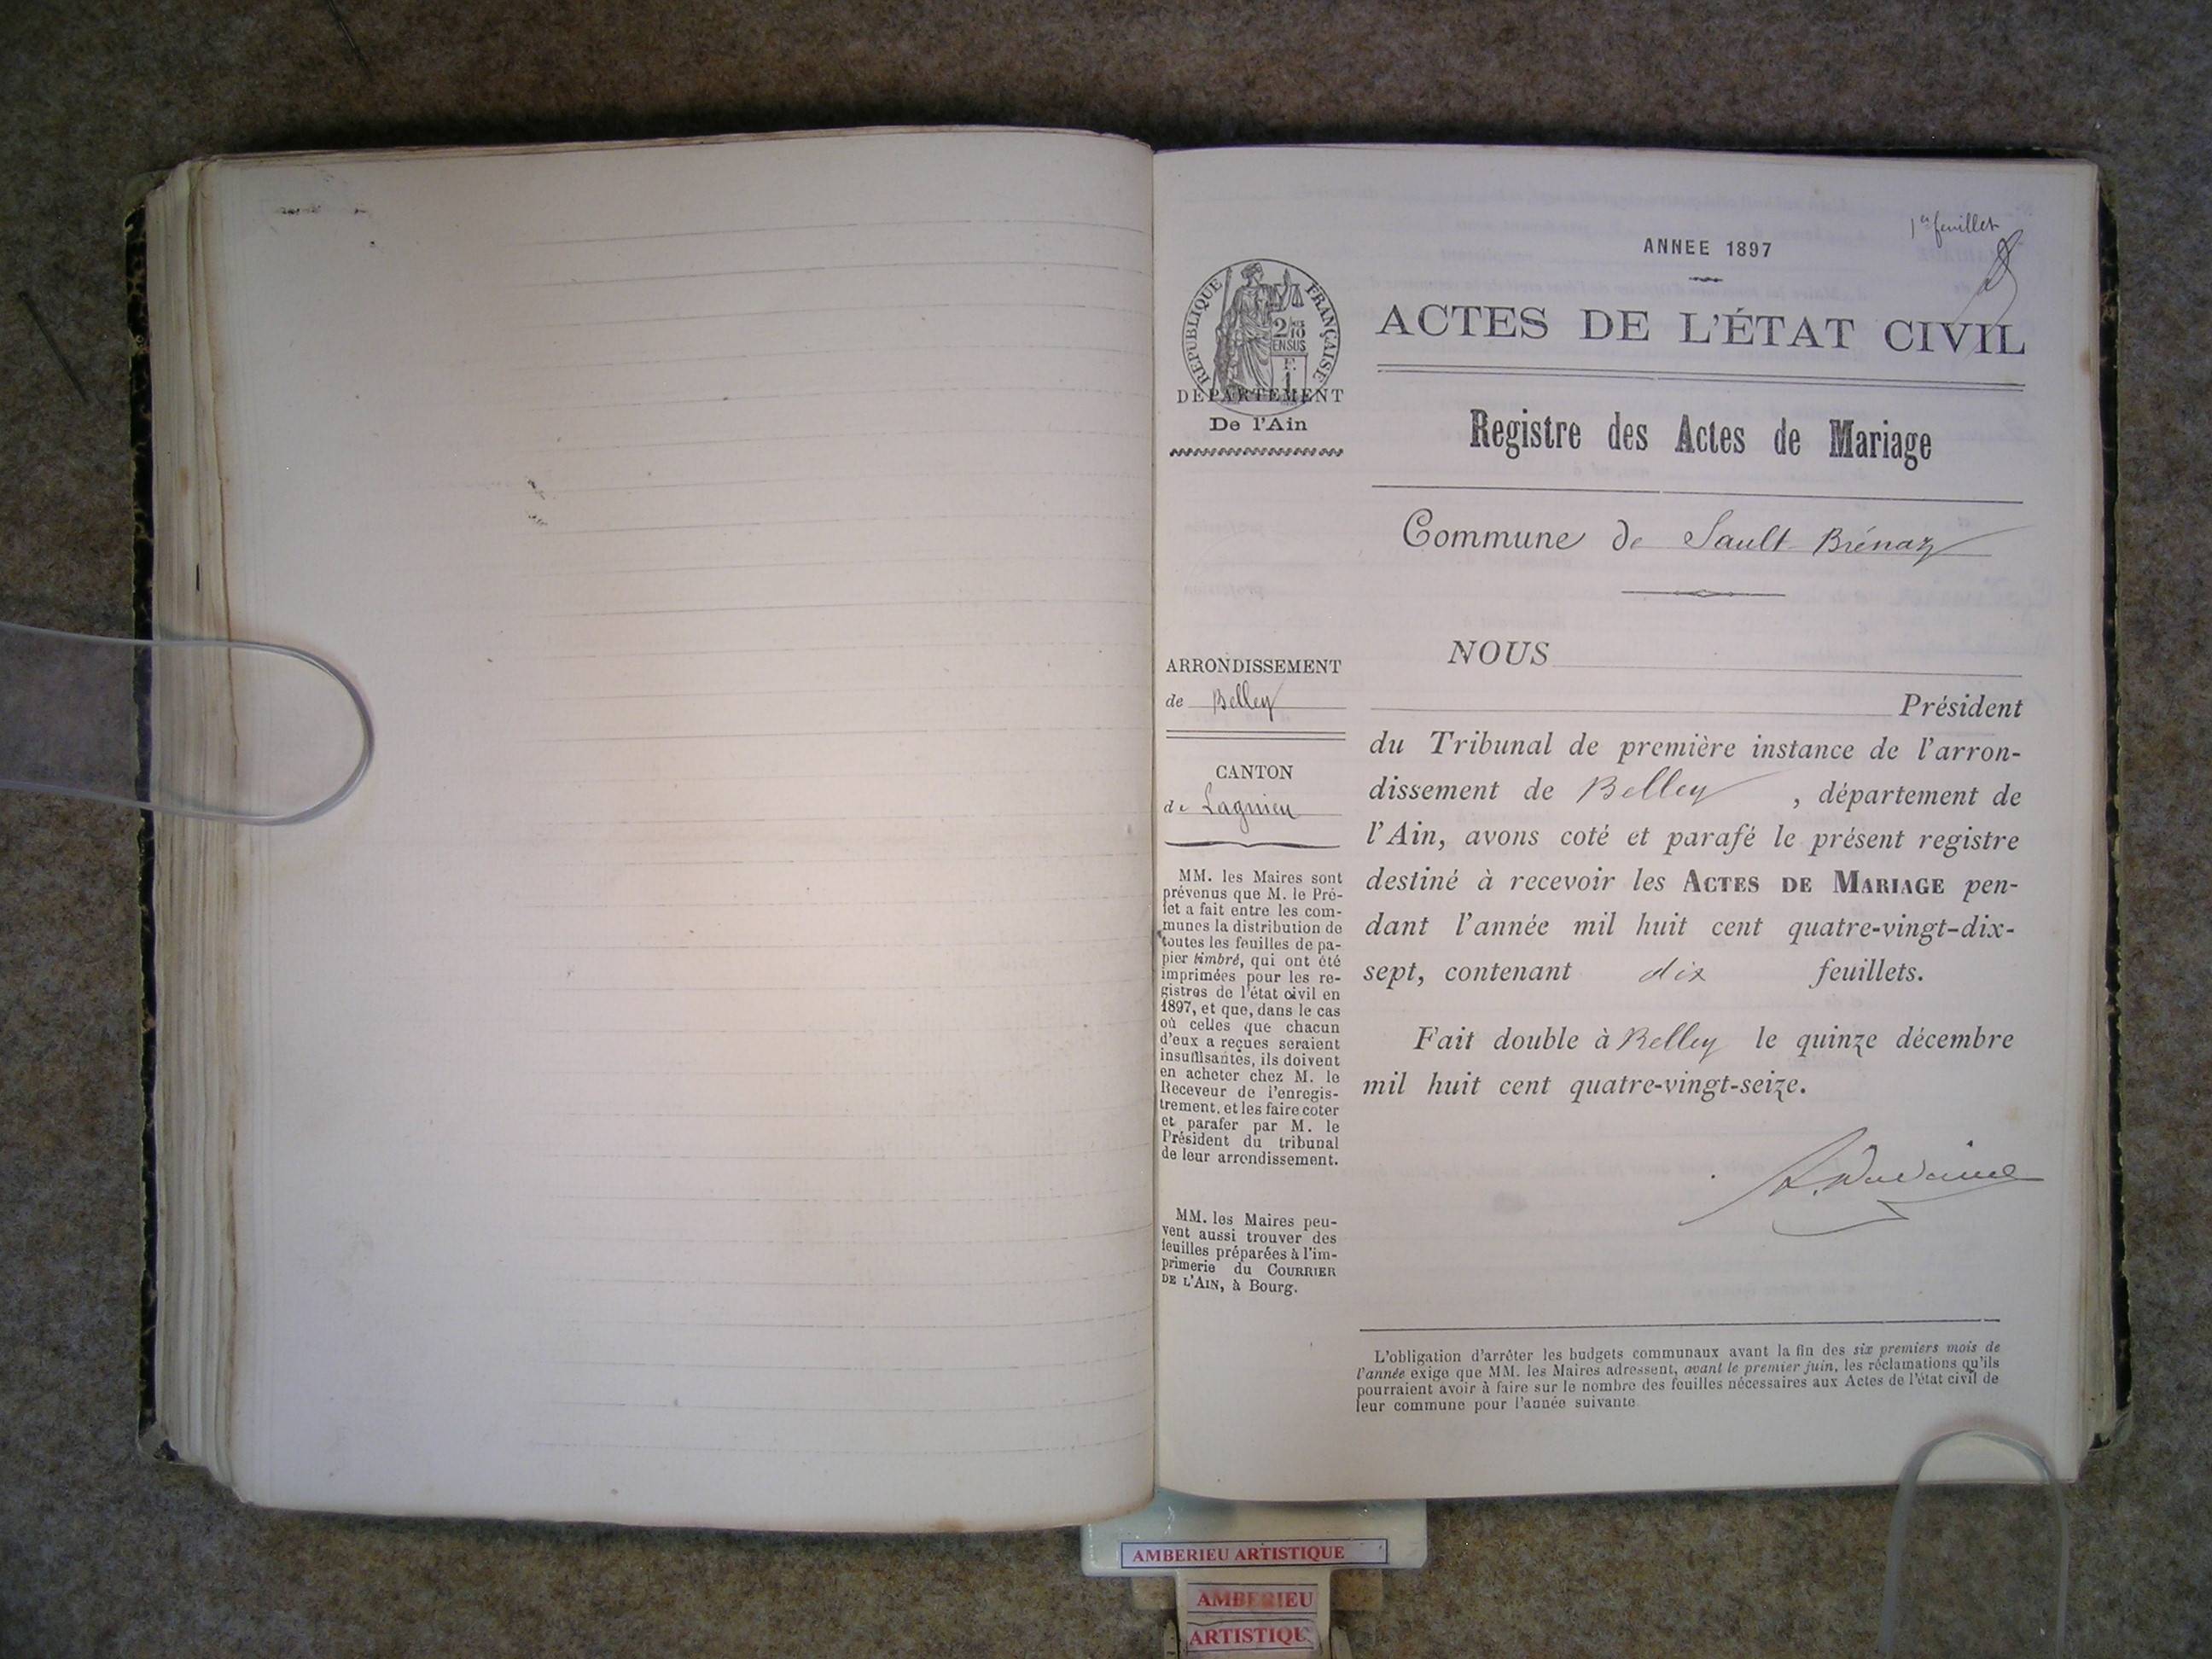 1er feuillet
ANNEE 1897
ACTES DE L'ÉTAT CIVIL
RÉPUBLIQUE FRANÇAISE
2/10
EN SUS
F.
1
DÉPARTEMENT
De l'Ain
Registre des Actes de Mariage
Commune de Sault-Brénaz
ARRONDISSEMENT
de Belley
CANTON
de Lagnieu
MM. les Maires sont
prévenus que M. le Pré-
fet a fait entre les com-
munes la distribution de
toutes les feuilles de pa-
pier timbré, qui ont été
imprimées pour les re-
gistres de l'état civil en
1897, et que, dans le cas
où celles que chacun
d'eux a reçues seraient
insuffisantes, ils doivent
en acheter chez M. le
Receveur de l'enregis-
trement, et les faire coter
et parafer par M. le
Président du tribunal
de leur arrondissement.
MM. les Maires peu-
vent aussi trouver des
feuilles préparées à l'im-
primerie du COURRIER
DE L'AIN, à Bourg.
NOUS
Président
du Tribunal de première instance de l'arron-
dissement de Belley , département de
l'Ain, avons coté et parafé le présent registre
destiné à recevoir les ACTES DE MARIAGE pen-
dant l'année mil huit cent quatre-vingt-dix-
sept, contenant dix feuillets.
Fait double à Belley le quinze décembre
mil huit cent quatre-vingt-seize.
L'obligation d'arrêter les budgets communaux avant la fin des six premiers mois de
l'année exige que MM. les Maires adressent, avant le premier juin, les réclamations qu'ils
pourraient avoir à faire sur le nombre des feuilles nécessaires aux Actes de l'état civil de
leur commune pour l'année suivante
AMBERIEU ARTISTIQUE
AMBERIEU
ARTISTIQUE